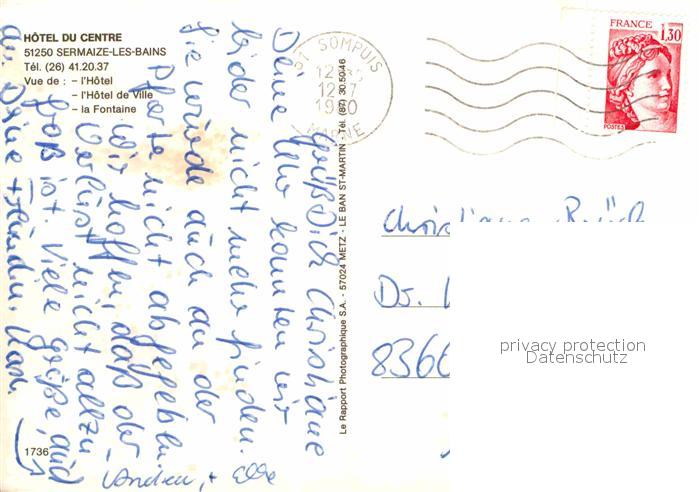 HÔTEL DU CENTRE
51250 SERMAIZE-LES-BAINS
Tél. (26) 41.20.37
Vue de : – l'Hôtel
– l'Hôtel de Ville
– la Fontaine
Grüß Dich Christiane
Deine Uhr konnten wir
leider nicht mehr finden.
Sie wurde auch an der
Pforte nicht abgegeben.
Wir hoffen, daß der
Verlust nicht allzu
groß ist. Viele Grüße, auch
an Deine
+ Elke
1736
Le Rapport Photographique S.A. - 57024 METZ - LE BAN ST-MARTIN - Tél. (87) 30.50.46
51 SOMPUIS
12-7
1980
MARNE
FRANCE
1,30
POSTES
Christiane
8366
privacy protection
Datenschutz